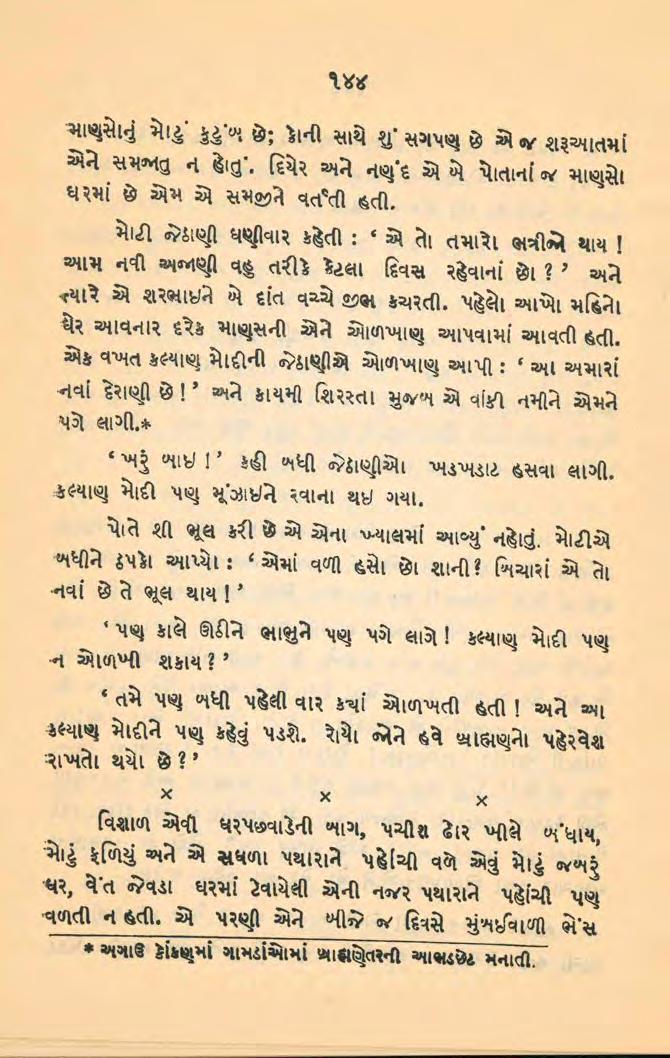 ૧૪૪
માણસોનું મોટું કુટુંબ છે; કોની સાથે શું સગપણ છે એ જ શરૂઆતમાં
એને સમજાતુ ન હોતું. દિયેર અને નણંદ એ બે પોતાનાં જ માણસો
ઘરમાં છે એમ એ સમજીને વર્તતી હતી.
મોટી જેઠાણી ઘણીવાર કહેતી : ‘ એ તો તમારો ભત્રીજો થાય !
આમ નવી અજાણી વહુ તરીકે કેટલા દિવસ રહેવાનાં છો ? ’ અને
ત્યારે એ શરભાઇને બે દાંત વચ્ચે જીભ કચરતી. પહેલો આખો મહિનો
ઘેર આવનાર દરેક માણસની એને ઓળખાણ આપવામાં આવતી હતી.
એક વખત કલ્યાણ મોદીની જેઠાણીએ ઓળખાણ આપી : ‘ આ અમારાં
નવાં દેરાણી છે ! ’ અને કાયમી શિરસ્તા મુજબ એ વાંકી નમીને એમને
પગે લાગી.*
‘ ખરૂં બાઇ ! ’ કહી બધી જેઠાણીઓ ખડખડાટ હસવા લાગી.
કલ્યાણ મોદી પણ મૂંઝાઇને રવાના થઇ ગયા.
પોતે શી ભૂલ કરી છે એ એના ખ્યાલમાં આવ્યું નહોતું. મોટીએ
બધીને ઠપકો આપ્યો : ‘ એમાં વળી હસો છો શાની? બિચારાં એ તો
નવાં છે તે ભૂલ થાય ! ’
‘ પણ કાલે ઊઠીને ભાભુને પણ પગે લાગે ! કલ્યાણ મોદી પણ
ન ઓળખી શકાય ? ’
‘ તમે પણ બધી પહેલી વાર ક્યાં ઓળખતી હતી ! અને આ
કલ્યાણ મોદીને પણ કહેવું પડશે. રોયો જોને હવે બ્રાહ્મણનો પહેરવેશ
રાખતો થયો છે ? ’
× × ×
વિશાળ એવી ઘરપછવાડેની બાગ, પચીશ ઢોર ખીલે બંધાય,
મોટું ફળિયું અને એ સઘળા પથારાને પહોંચી વળે એવું મોટું જબરૂં
ઘર, વેંત જેવડા ઘરમાં ટેવાયેલી એની નજર પથારાને પહોંચી પણ
વળતી ન હતી. એ પરણી એને બીજે જ દિવસે મુંબઈવાળી ભેંસ
* અગાઉ કોંકણમાં ગામડાંઓમાં બ્રાહ્મણેતરની આભડછેટ મનાતી.